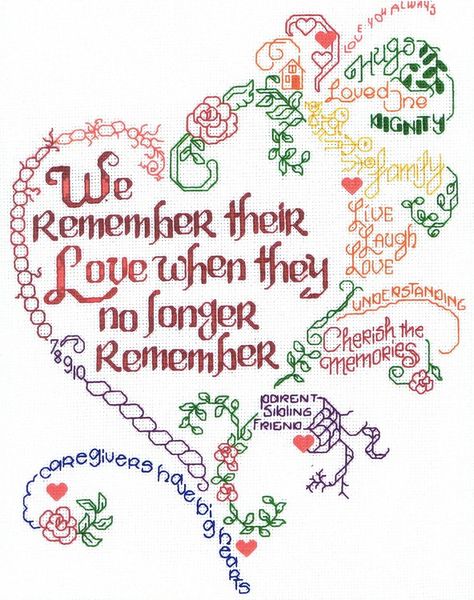 Love You Always
Hugs
Loved One
Dignity
Family
Live
Laugh
Love
We
Remember their
Love when they
no longer
Remember
Understanding
Cherish the
Memories
7 8 9 10
Parent
Sibling
Friend
Caregivers have big hearts